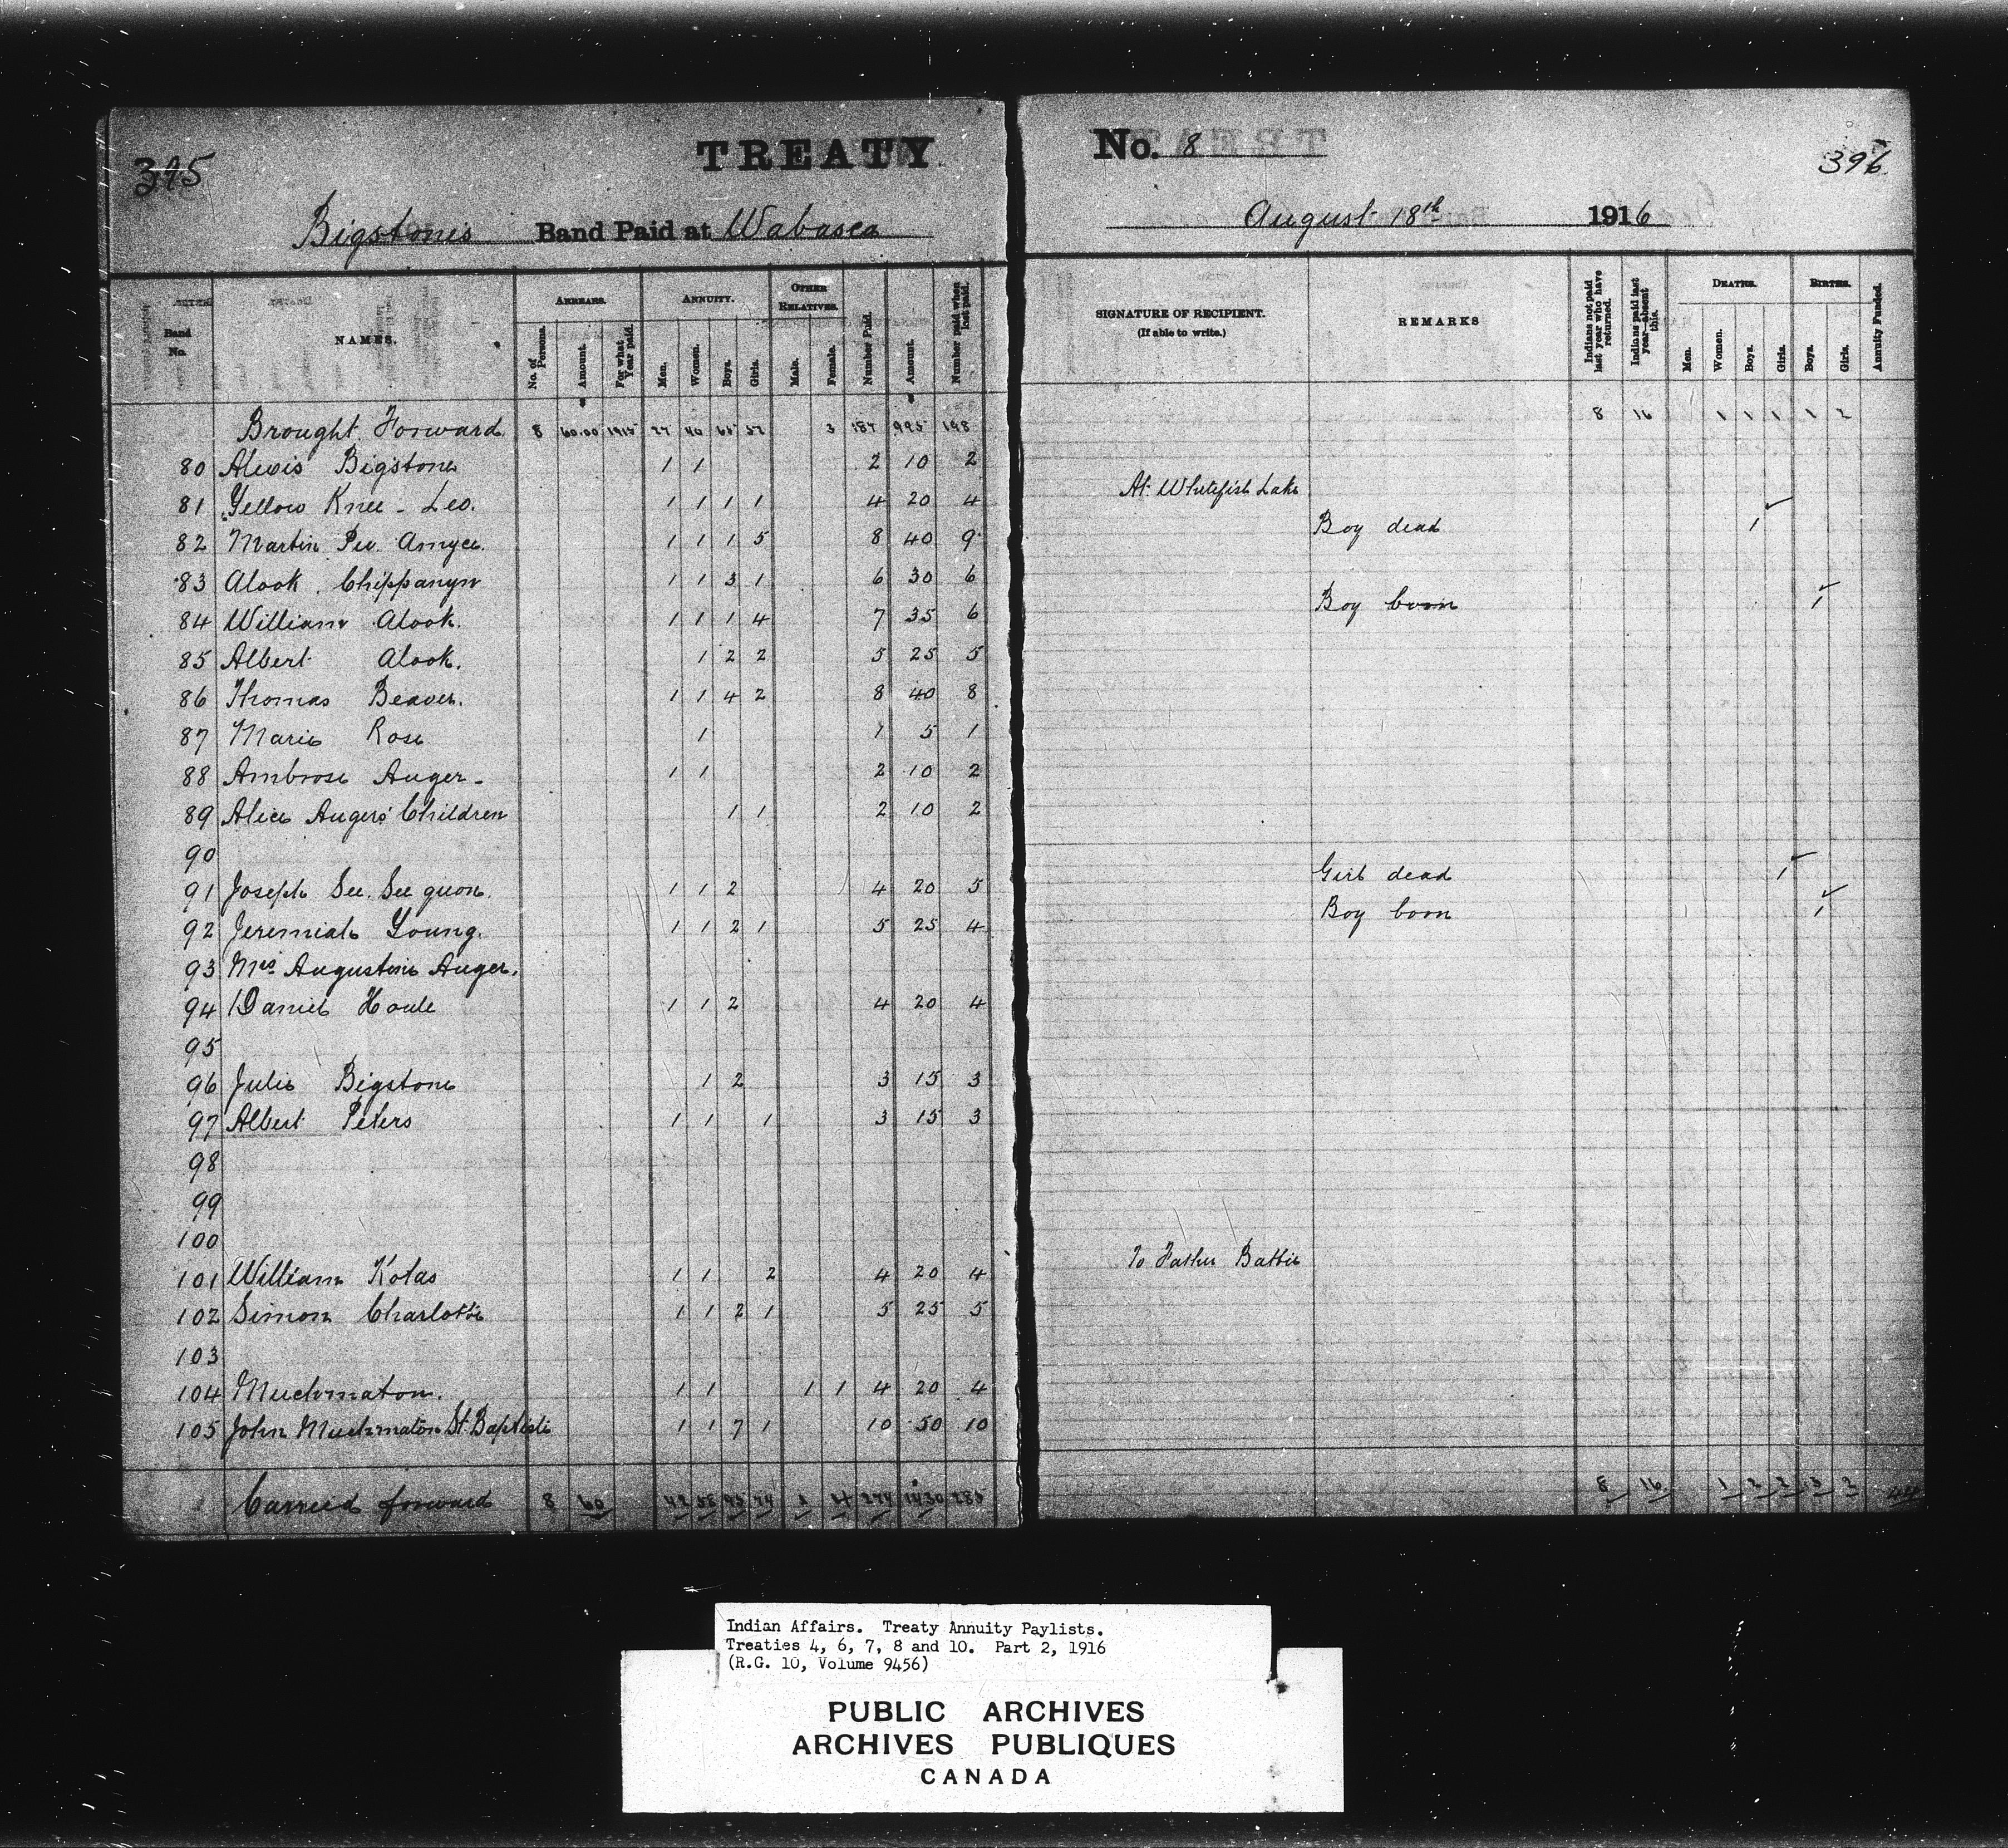 395
TREATY No. 8
396
Bigstones Band Paid at Wabasca August 18th 1916
Band No.
NAMES.
ARREARS.
No. of Persons.
Amount.
For what Year paid.
ANNUITY.
Men.
Women.
Boys.
Girls.
OTHER RELATIVES.
Male.
Female.
Number Paid.
Amount.
Number paid when last paid.
SIGNATURE OF RECIPIENT.
(If able to write.)
REMARKS
Indians not paid last year who have returned.
Indians paid last year—absent this.
DEATHS.
Men.
Women.
Boys.
Girls.
BIRTHS.
Boys.
Girls.
Annuity Funded.
Brought Forward 8 60.00 1915 27 40 3 187 995 198 8 16 1 1 1 1 2
80 Alexis Bigstone 1 1 2 10 2
81 Yellow Knee - Leo. 1 1 1 1 4 20 4 At Whitefish Lake
82 Martin Pee Amyce. 1 1 1 5 8 40 9 Boy dead 1
83 Alook Chippanyn 1 1 3 1 6 30 6
84 William Alook. 1 1 1 4 7 35 6 Boy born 1
85 Albert Alook. 1 2 2 5 25 5
86 Thomas Beaver. 1 1 4 2 8 40 8
87 Marie Rose 1 1 5 1
88 Ambrose Auger - 1 1 2 10 2
89 Alice Augers' Children 1 1 2 10 2
90
91 Joseph See. See quon. 1 1 2 4 20 5 Girl dead 1
92 Jeremiah Young. 1 1 2 1 5 25 4 Boy born 1
93 Mrs Augustine Auger.
94 Daniel Houle 1 1 2 4 20 4
95
96 Julie Bigstone 1 2 3 15 3
97 Albert Peters 1 1 1 3 15 3
98
99
100
101 William Kolas 1 1 2 4 20 4 To Father Battie
102 Simon Charlotte 1 1 2 1 5 25 5
103
104 Muchmaton. 1 1 1 1 4 20 4
105 John Muchmaton St. Baptiste 1 1 7 1 10 50 10
Carried forward 8 60 42 58 93 74 1 4 274 1430 8 16 1 2 2 3 2
Indian Affairs. Treaty Annuity Paylists.
Treaties 4, 6, 7, 8 and 10. Part 2, 1916
(R.G. 10, Volume 9456)
PUBLIC ARCHIVES
ARCHIVES PUBLIQUES
CANADA